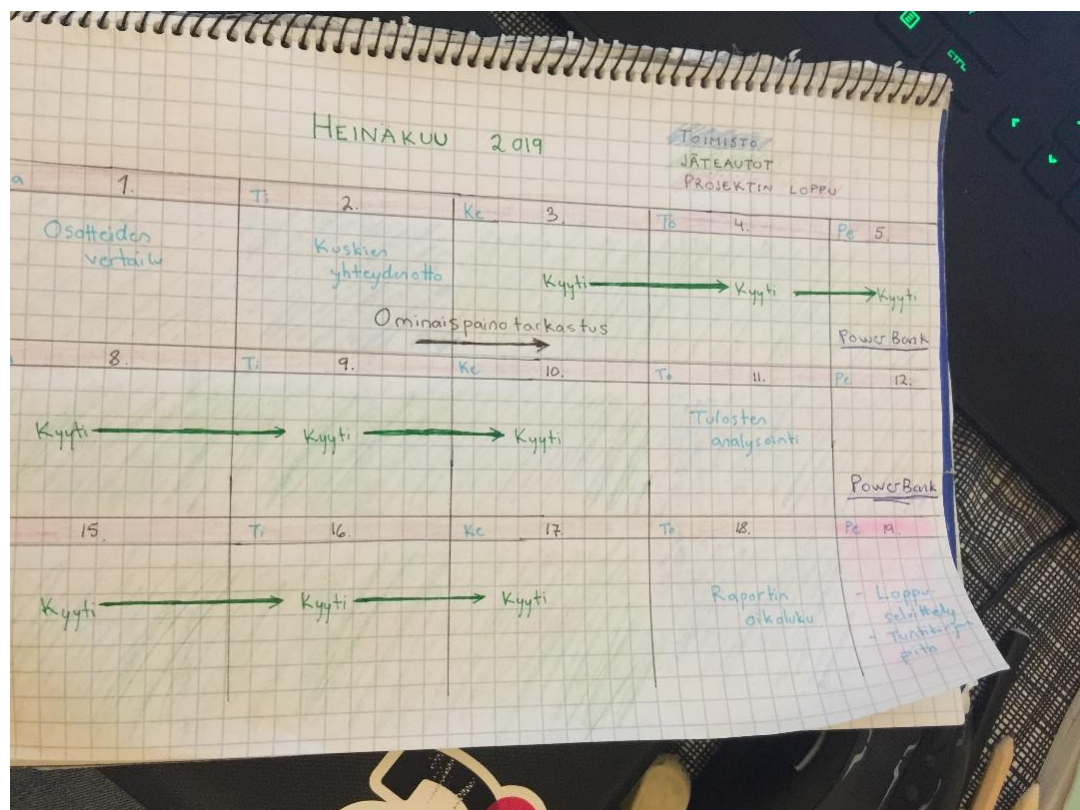 CTRL
HEINÄKUU 2019
TOIMISTO
JÄTEAUTOT
PROJEKTIN LOPPU
a 1. Ti 2. Ke 3. To 4. Pe 5.
Osoitteiden
vertailu
Kuskien
yhteydenotto
Kyyti Kyyti Kyyti
Ominaispaino tarkastus
PowerBank
8. Ti 9. Ke 10. To 11. Pe 12.
Kyyti Kyyti Kyyti
Tulosten
analysointi
PowerBank
15. Ti 16. Ke 17. To 18. Pe 19.
Kyyti Kyyti Kyyti
Raportin
oikoluku
- Loppu-
selvittely